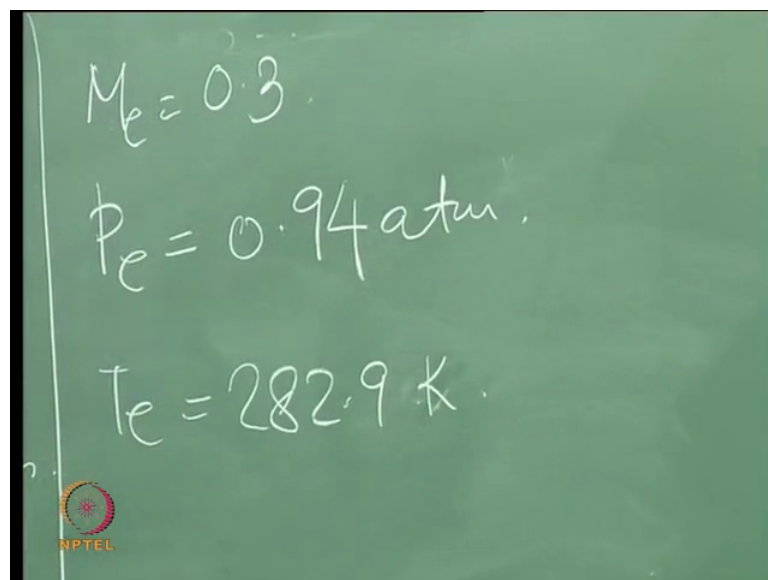 Me = 0.3
Pe = 0.94 atm.
Te = 282.9 K.
NPTEL